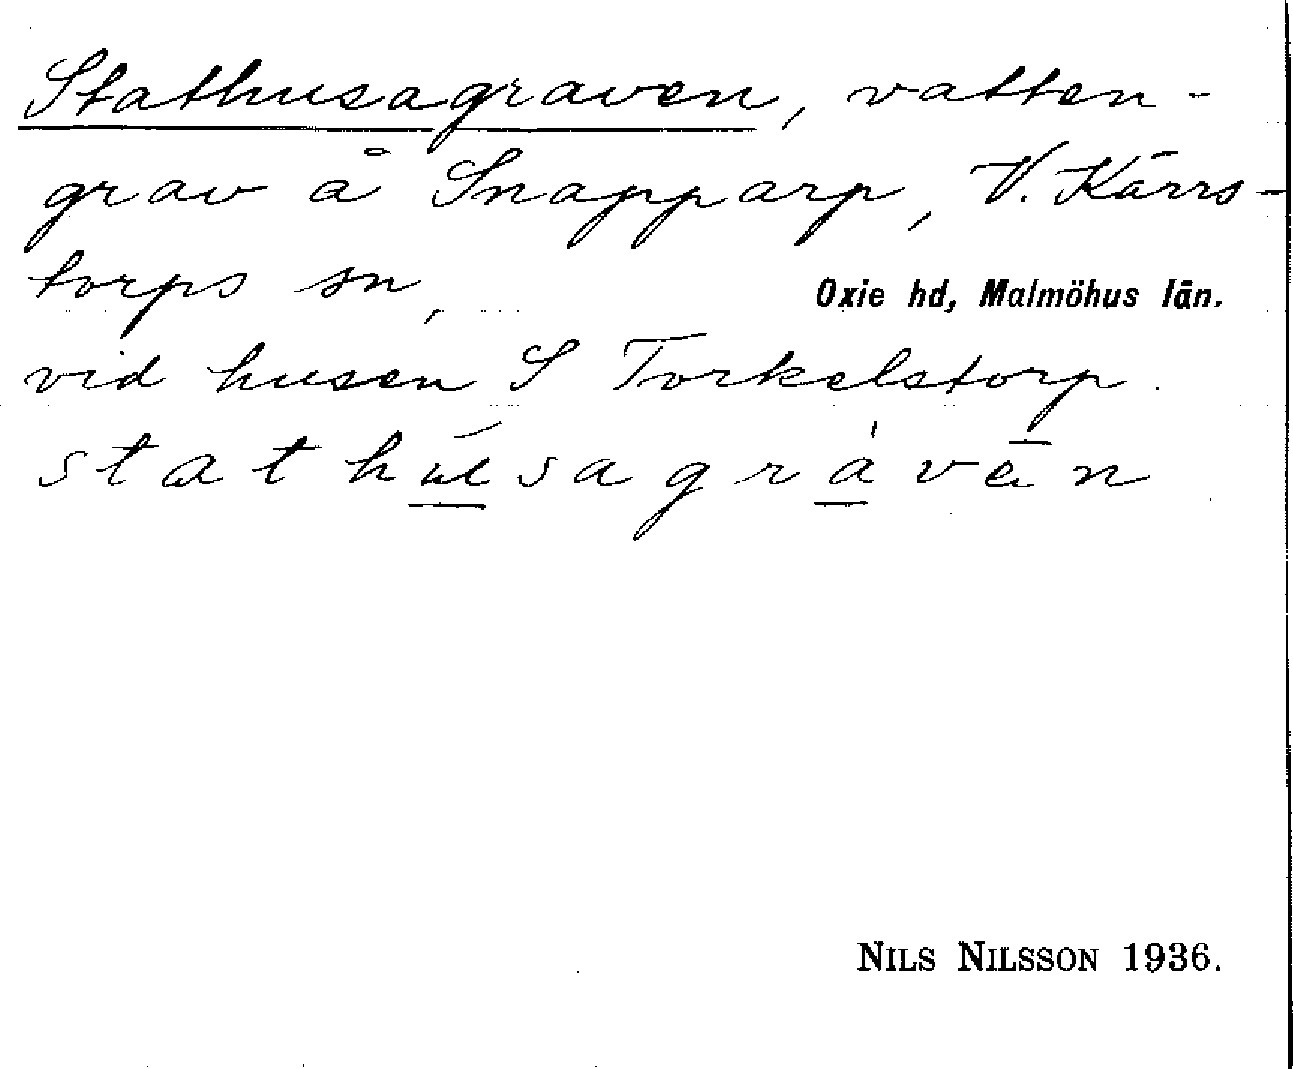 Stathusagraven, vatten-
grav å Snapparp, V. Kärrs-
torps sn, Oxie hd, Malmöhus län.
vid husen S Torkelstorp.
NILS NILSSON 1936.